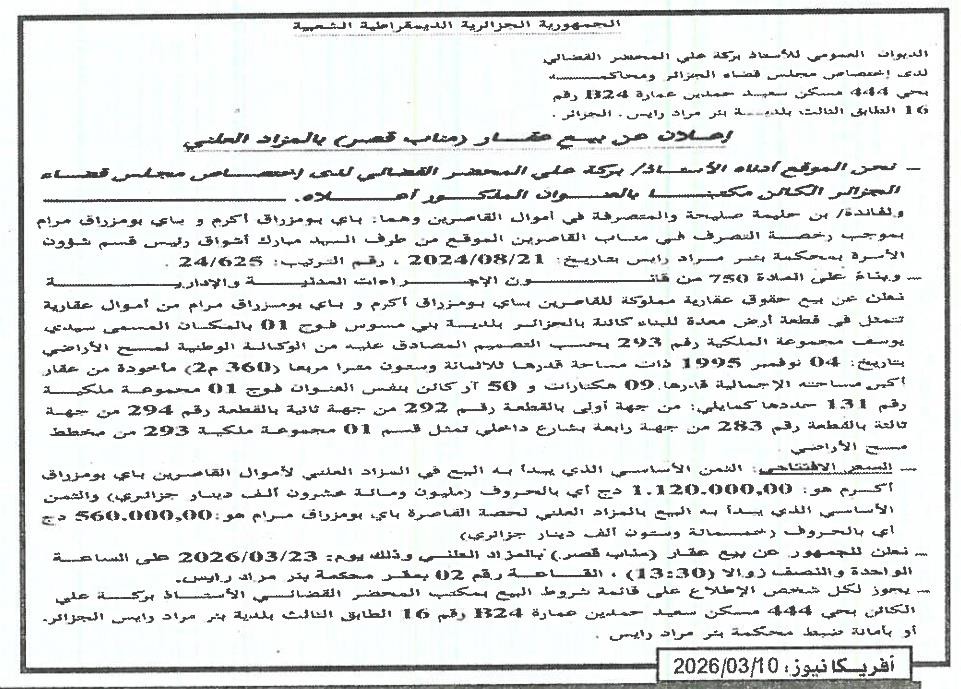 الجمهورية الجزائرية الديمقراطية الشعبية
الديوان العمومي للأستاذ بركة علي المحضر القضائي
لدى إختصاص مجلس قضاء الجزائر ومحاكمه
بحي 444 مسكن سعيد حمدين عمارة B24 رقم
16 الطابق الثالث بلدية بئر مراد رايس . الجزائر .
إعلان عن بيع عقار (مناب قصر) بالمزاد العلني
– نحن الموقع أدناه الأستاذ/ بركة علي المحضر القضائي لدى إختصاص مجلس قضاء
الجزائر الكائن مكتبنا بالعنوان المذكور أعلاه.
ولفائدة/ بن حليمة صليحة والمتصرفة في أموال القاصرين وهما: باي بومزراق أكرم و باي بومزراق مرام
بموجب رخصة التصرف في مناب القاصرين الموقع من طرف السيد مبارك أشواق رئيس قسم شؤون
الأسرة بمحكمة بئر مراد رايس بتاريخ: 2024/08/21 ، رقم الترتيب: 24/625 .
– وبناء على المادة 750 من قانون الإجراءات المدنية والإدارية
نعلن عن بيع حقوق عقارية مملوكة للقاصرين باي بومزراق أكرم و باي بومزراق مرام من أموال عقارية
تتمثل في قطعة أرض معدة للبناء كائنة بالجزائر بلدية بني مسوس فوج 01 بالمكان المسمى سيدي
يوسف مجموعة الملكية رقم 293 بحسب التصميم المصادق عليه من الوكالة الوطنية لمسح الأراضي
بتاريخ: 04 نوفمبر 1995 ذات مساحة قدرها ثلاثمائة وستون مترا مربعا (360 م2) مأخوذة من عقار
أكبر مساحته الإجمالية قدرها 09 هكتارات و 50 آر كائن بنفس العنوان فوج 01 مجموعة ملكية
رقم 131 حددها كمايلي: من جهة أولى بالقطعة رقم 292 من جهة ثانية بالقطعة رقم 294 من جهة
ثالثة بالقطعة رقم 283 من جهة رابعة بشارع داخلي تمثل قسم 01 مجموعة ملكية 293 من مخطط
مسح الأراضي .
– السعر الإفتتاحي: الثمن الأساسي الذي يبدأ به البيع في المزاد العلني لأموال القاصرين باي بومزراق
أكرم هو: 1.120.000,00 دج أي بالحروف (مليون ومائة عشرون ألف دينار جزائري) والثمن
الأساسي الذي يبدأ به البيع بالمزاد العلني لحصة القاصرة باي بومزراق مرام هو:560.000,00 دج
أي بالحروف (خمسمائة وستون ألف دينار جزائري)
– نعلن للجمهور عن بيع عقار (مناب قصر) بالمزاد العلني وذلك يوم: 2026/03/23 على الساعة
الواحدة والنصف زوالا (13:30) ، القاعة رقم 02 بمقر محكمة بئر مراد رايس.
– يجوز لكل شخص الإطلاع على قائمة شروط البيع بمكتب المحضر القضائي الأستاذ بركة علي
الكائن بحي 444 مسكن سعيد حمدين عمارة B24 رقم 16 الطابق الثالث بلدية بئر مراد رايس الجزائر.
أو بأمانة ضبط محكمة بئر مراد رايس .
أفريكا نيوز: 2026/03/10